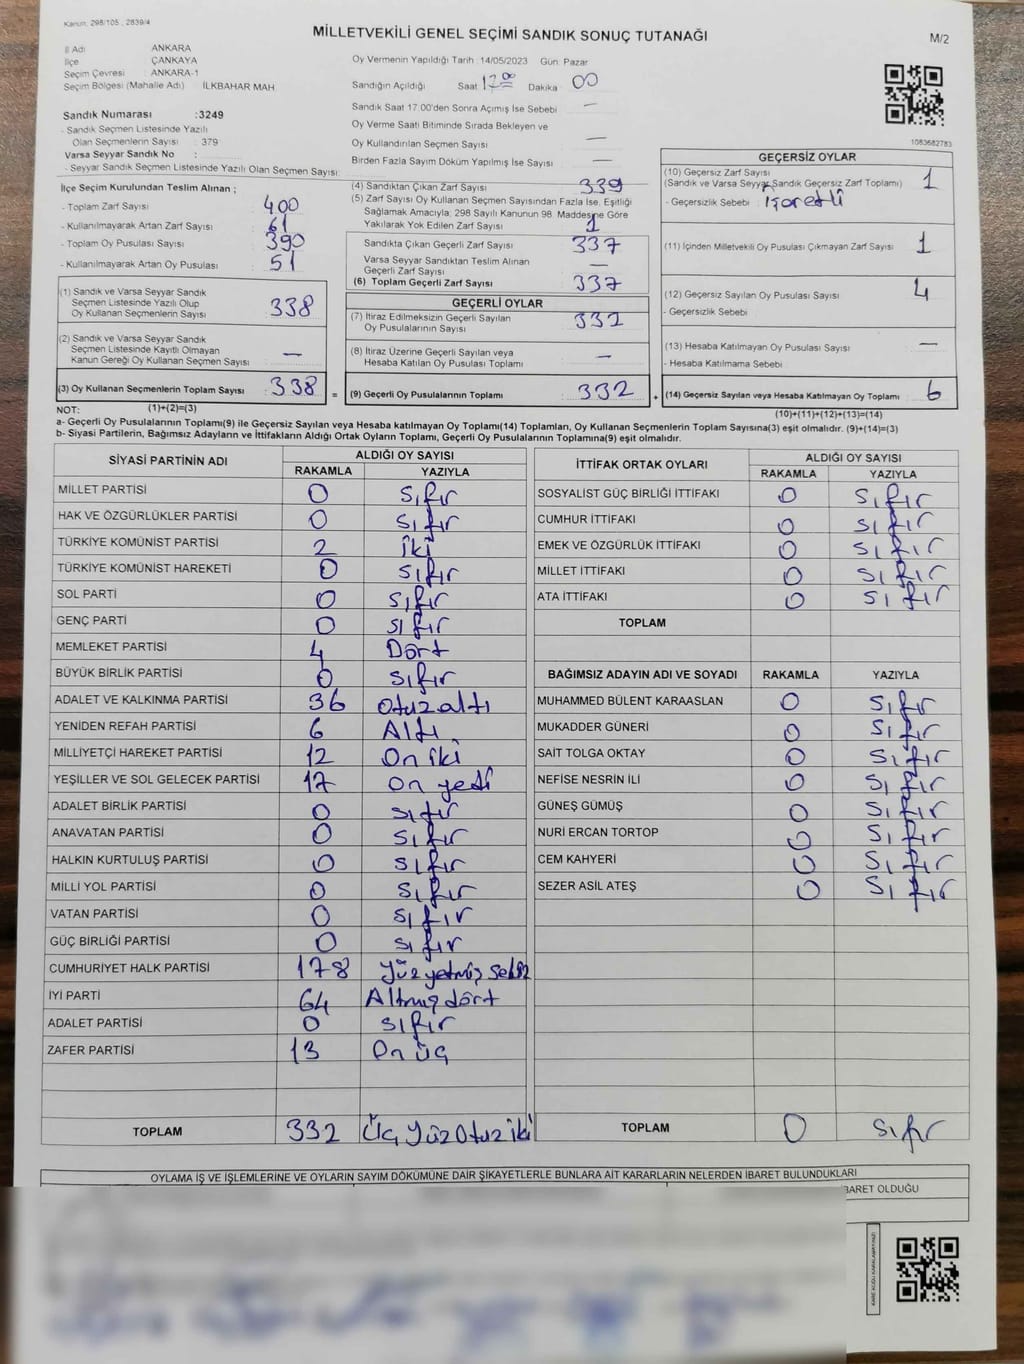 Kanun: 298/105, 2839/4
MİLLETVEKİLİ GENEL SEÇİMİ SANDIK SONUÇ TUTANAĞI
M/2
İl Adı ANKARA
İlçe ÇANKAYA
Seçim Çevresi : ANKARA-1
Seçim Bölgesi (Mahalle Adı) İLKBAHAR MAH.
Oy Vermenin Yapıldığı Tarih : 14/05/2023 Gün: Pazar
Sandığın Açıldığı Saat 17.00 Dakika 00
Sandık Saat 17:00'den Sonra Açımış İse Sebebi —
Oy Verme Saati Bitiminde Sırada Bekleyen ve
Oy Kullandırılan Seçmen Sayısı —
Birden Fazla Sayım Döküm Yapılmış İse Sayısı —
1083682783
Sandık Numarası :3249
- Sandık Seçmen Listesinde Yazılı
Olan Seçmenlerin Sayısı : 379
Varsa Seyyar Sandık No :
- Seyyar Sandık Seçmen Listesinde Yazılı Olan Seçmen Sayısı:
İlçe Seçim Kurulundan Teslim Alınan ;
- Toplam Zarf Sayısı : 400
- Kullanılmayarak Artan Zarf Sayısı : 61
- Toplam Oy Pusulası Sayısı : 390
- Kullanılmayarak Artan Oy Pusulası : 51
(1) Sandık ve Varsa Seyyar Sandık
Seçmen Listesinde Yazılı Olup
Oy Kullanan Seçmenlerin Sayısı : 338
(2) Sandık ve Varsa Seyyar Sandık
Seçmen Listesinde Kayıtlı Olmayan
Kanun Gereği Oy Kullanan Seçmen Sayısı : —
(3) Oy Kullanan Seçmenlerin Toplam Sayısı : 338
=
(4) Sandıktan Çıkan Zarf Sayısı : 339
(5) Zarf Sayısı Oy Kullanan Seçmen Sayısından Fazla İse, Eşitliği
Sağlamak Amacıyla; 298 Sayılı Kanunun 98. Maddesine Göre
Yakılarak Yok Edilen Zarf Sayısı : 1
Sandıkta Çıkan Geçerli Zarf Sayısı : 337
Varsa Seyyar Sandıktan Teslim Alınan
Geçerli Zarf Sayısı : —
(6) Toplam Geçerli Zarf Sayısı : 337
GEÇERLİ OYLAR
(7) İtiraz Edilmeksizin Geçerli Sayılan
Oy Pusulalarının Sayısı : 332
(8) İtiraz Üzerine Geçerli Sayılan veya
Hesaba Katılan Oy Pusulası Toplamı : —
(9) Geçerli Oy Pusulalarının Toplamı : 332
+
GEÇERSİZ OYLAR
(10) Geçersiz Zarf Sayısı
(Sandık ve Varsa Seyyar Sandık Geçersiz Zarf Toplamı) : 1
- Geçersizlik Sebebi : İşaretli
(11) İçinden Milletvekili Oy Pusulası Çıkmayan Zarf Sayısı : 1
(12) Geçersiz Sayılan Oy Pusulası Sayısı : 4
- Geçersizlik Sebebi
(13) Hesaba Katılmayan Oy Pusulası Sayısı : —
- Hesaba Katılmama Sebebi
(14) Geçersiz Sayılan veya Hesaba Katılmayan Oy Toplamı : 6
NOT: (1)+(2)=(3) (10)+(11)+(12)+(13)=(14)
a- Geçerli Oy Pusulalarının Toplamı(9) ile Geçersiz Sayılan veya Hesaba katılmayan Oy Toplamı(14) Toplamları, Oy Kullanan Seçmenlerin Toplam Sayısına(3) eşit olmalıdır. (9)+(14)=(3)
b- Siyasi Partilerin, Bağımsız Adayların ve İttifakların Aldığı Ortak Oyların Toplamı, Geçerli Oy Pusulalarının Toplamına(9) eşit olmalıdır.
SİYASİ PARTİNİN ADI ALDIĞI OY SAYISI
RAKAMLA YAZIYLA
MİLLET PARTİSİ 0 Sıfır
HAK VE ÖZGÜRLÜKLER PARTİSİ 0 Sıfır
TÜRKİYE KOMÜNİST PARTİSİ 2 İki
TÜRKİYE KOMÜNİST HAREKETİ 0 Sıfır
SOL PARTİ 0 Sıfır
GENÇ PARTİ 0 Sıfır
MEMLEKET PARTİSİ 4 Dört
BÜYÜK BİRLİK PARTİSİ 0 Sıfır
ADALET VE KALKINMA PARTİSİ 36 Otuzaltı
YENİDEN REFAH PARTİSİ 6 Altı
MİLLİYETÇİ HAREKET PARTİSİ 12 On iki
YEŞİLLER VE SOL GELECEK PARTİSİ 17 On yedi
ADALET BİRLİK PARTİSİ 0 Sıfır
ANAVATAN PARTİSİ 0 Sıfır
HALKIN KURTULUŞ PARTİSİ 0 Sıfır
MİLLİ YOL PARTİSİ 0 Sıfır
VATAN PARTİSİ 0 Sıfır
GÜÇ BİRLİĞİ PARTİSİ 0 Sıfır
CUMHURİYET HALK PARTİSİ 178 Yüzyetmiş sekiz
İYİ PARTİ 64 Altmışdört
ADALET PARTİSİ 0 Sıfır
ZAFER PARTİSİ 13 On üç
TOPLAM 332 Üç Yüz Otuz iki
İTTİFAK ORTAK OYLARI ALDIĞI OY SAYISI
RAKAMLA YAZIYLA
SOSYALİST GÜÇ BİRLİĞİ İTTİFAKI 0 Sıfır
CUMHUR İTTİFAKI 0 Sıfır
EMEK VE ÖZGÜRLÜK İTTİFAKI 0 Sıfır
MİLLET İTTİFAKI 0 Sıfır
ATA İTTİFAKI 0 Sıfır
TOPLAM
BAĞIMSIZ ADAYIN ADI VE SOYADI RAKAMLA YAZIYLA
MUHAMMED BÜLENT KARAASLAN 0 Sıfır
MUKADDER GÜNERİ 0 Sıfır
SAİT TOLGA OKTAY 0 Sıfır
NEFİSE NESRİN İLİ 0 Sıfır
GÜNEŞ GÜMÜŞ 0 Sıfır
NURİ ERCAN TORTOP 0 Sıfır
CEM KAHYERİ 0 Sıfır
SEZER ASİL ATEŞ 0 Sıfır
TOPLAM 0 Sıfır
OYLAMA İŞ VE İŞLEMLERİNE VE OYLARIN SAYIM DÖKÜMÜNE DAİR ŞİKAYETLERLE BUNLARA AİT KARARLARIN NELERDEN İBARET BULUNDUKLARI
BARET OLDUĞU